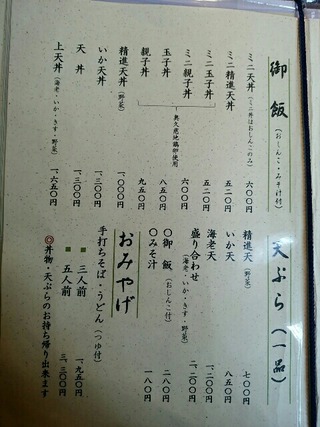 御飯（おしんこ・みそ汁付）
ミニ天丼（ミニ丼はおしんこのみ） 六〇〇円
ミニ精進天丼 五二〇円
ミニ玉子丼 五二〇円
ミニ親子丼 六〇〇円
玉子丼 八五〇円
親子丼 九五〇円
奥久慈地鶏卵使用
精進天丼（野菜） 一、〇〇〇円
いか天丼 一、二〇〇円
天丼 一、三〇〇円
上天丼（海老・いか・きす・野菜） 一、六五〇円
天ぷら（一品）
精進天（野菜） 七〇〇円
いか天 八五〇円
海老天 一、二〇〇円
盛り合わせ（海老・いか・きす・野菜） 二、二〇〇円
〇御飯（おしんこ付） 二八〇円
〇みそ汁 一八〇円
おみやげ
手打ちそば・うどん（つゆ付）
■三人前 一、九五〇円
■五人前 三、二〇〇円
◎丼物・天ぷらのお持ち帰り出来ます